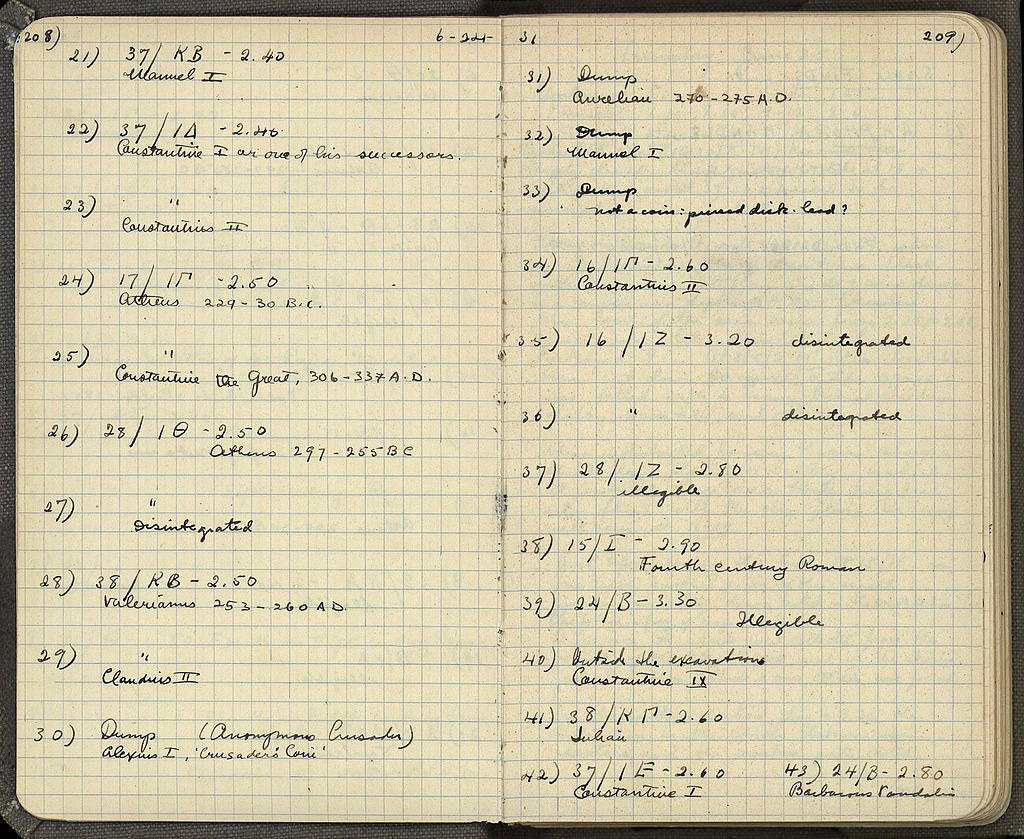 208)
6-24-31
21) 37/KB - 2.40
Manuel I
22) 37/ΙΔ - 2.40
Constantine I or one of his successors.
23) "
Constantius II
24) 17/ΙΓ - 2.50
Athens 229-30 B.C.
25) "
Constantine the Great, 306-337 A.D.
26) 28/ΙΘ - 2.50
Athens 297-255 BC
27) "
Disintegrated
28) 38/KB - 2.50
Valerianus 253-260 AD.
29) "
Claudius II
30) Dump (Anonymous Crusader)
Alexius I, 'Crusader's Coin'
209)
31) Dump
Aurelian 270-275 A.D.
32) Dump
Manuel I
33) Dump
Not a coin: pierced disk. lead?
34) 16/ΙΓ - 2.60
Constantius II
35) 16/ΙΖ - 3.20 disintegrated
36) " disintegrated
37) 28/ΙΖ - 2.80
illegible
38) 15/Ι - 2.90
Fourth century Roman
39) 24/B - 3.30
Illegible
40) Outside the excavations
Constantine IX
41) 38/ΚΓ - 2.60
Julian
42) 37/ΙΕ - 2.60 43) 24/B - 2.80
Constantine I Barbarous Vandalic